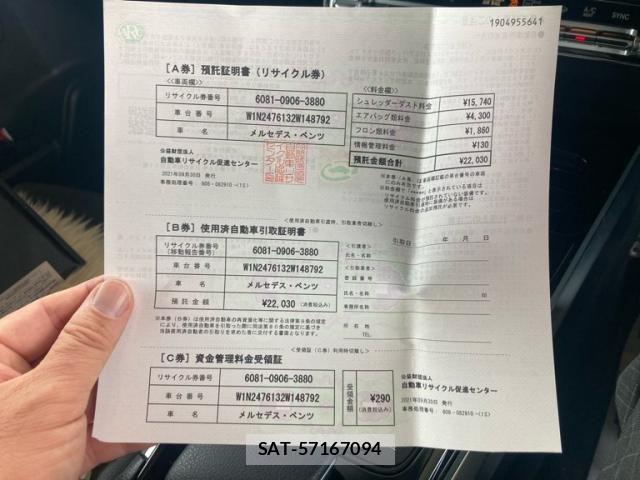 1904955641
ARC
[A券] 預託証明書 (リサイクル券)
<<車両欄>>
リサイクル券番号 6081-0906-3880
車台番号 W1N2476132W148792
車名 メルセデス・ベンツ
<<料金欄>>
シュレッダーダスト料金 ¥15,740
エアバッグ類料金 ¥4,300
フロン類料金 ¥1,860
情報管理料金 ¥130
預託金額合計 ¥22,030
公益財団法人
自動車リサイクル促進センター
2021年09月30日 発行
<使用済自動車引渡時、引取業者切離し>
[B券] 使用済自動車引取証明書
リサイクル券番号
(移動報告番号) 6081-0906-3880
車台番号 W1N2476132W148792
車名 メルセデス・ベンツ
預託金額 ¥22,030 (消費税込み)
引取日 年 月 日
<引渡者>
氏名・名称
<引取業者>
登録番号
氏名・名称 印
事業所名称
所在地
TEL.
<受領証(C券)利用時切離し>
[C券] 資金管理料金受領証
リサイクル券番号 6081-0906-3880
車台番号 W1N2476132W148792
車名 メルセデス・ベンツ
受領金額 ¥290
(消費税込み)
公益財団法人
自動車リサイクル促進センター
2021年09月30日 発行
A/C
SYNC
SAT-57167094